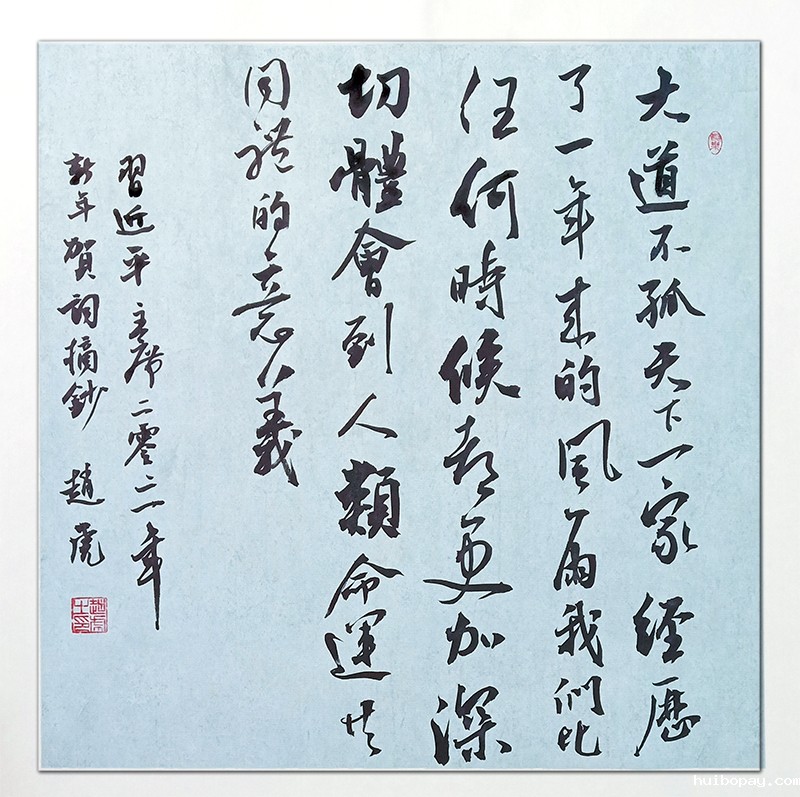 大道不孤天下一家經歷
了一年來的風雨我們比
任何時候都更加深
切體會到人類命運共
同體的意義
習近平主席二零二一年
新年賀詞摘鈔 趙虎
huibopay.com